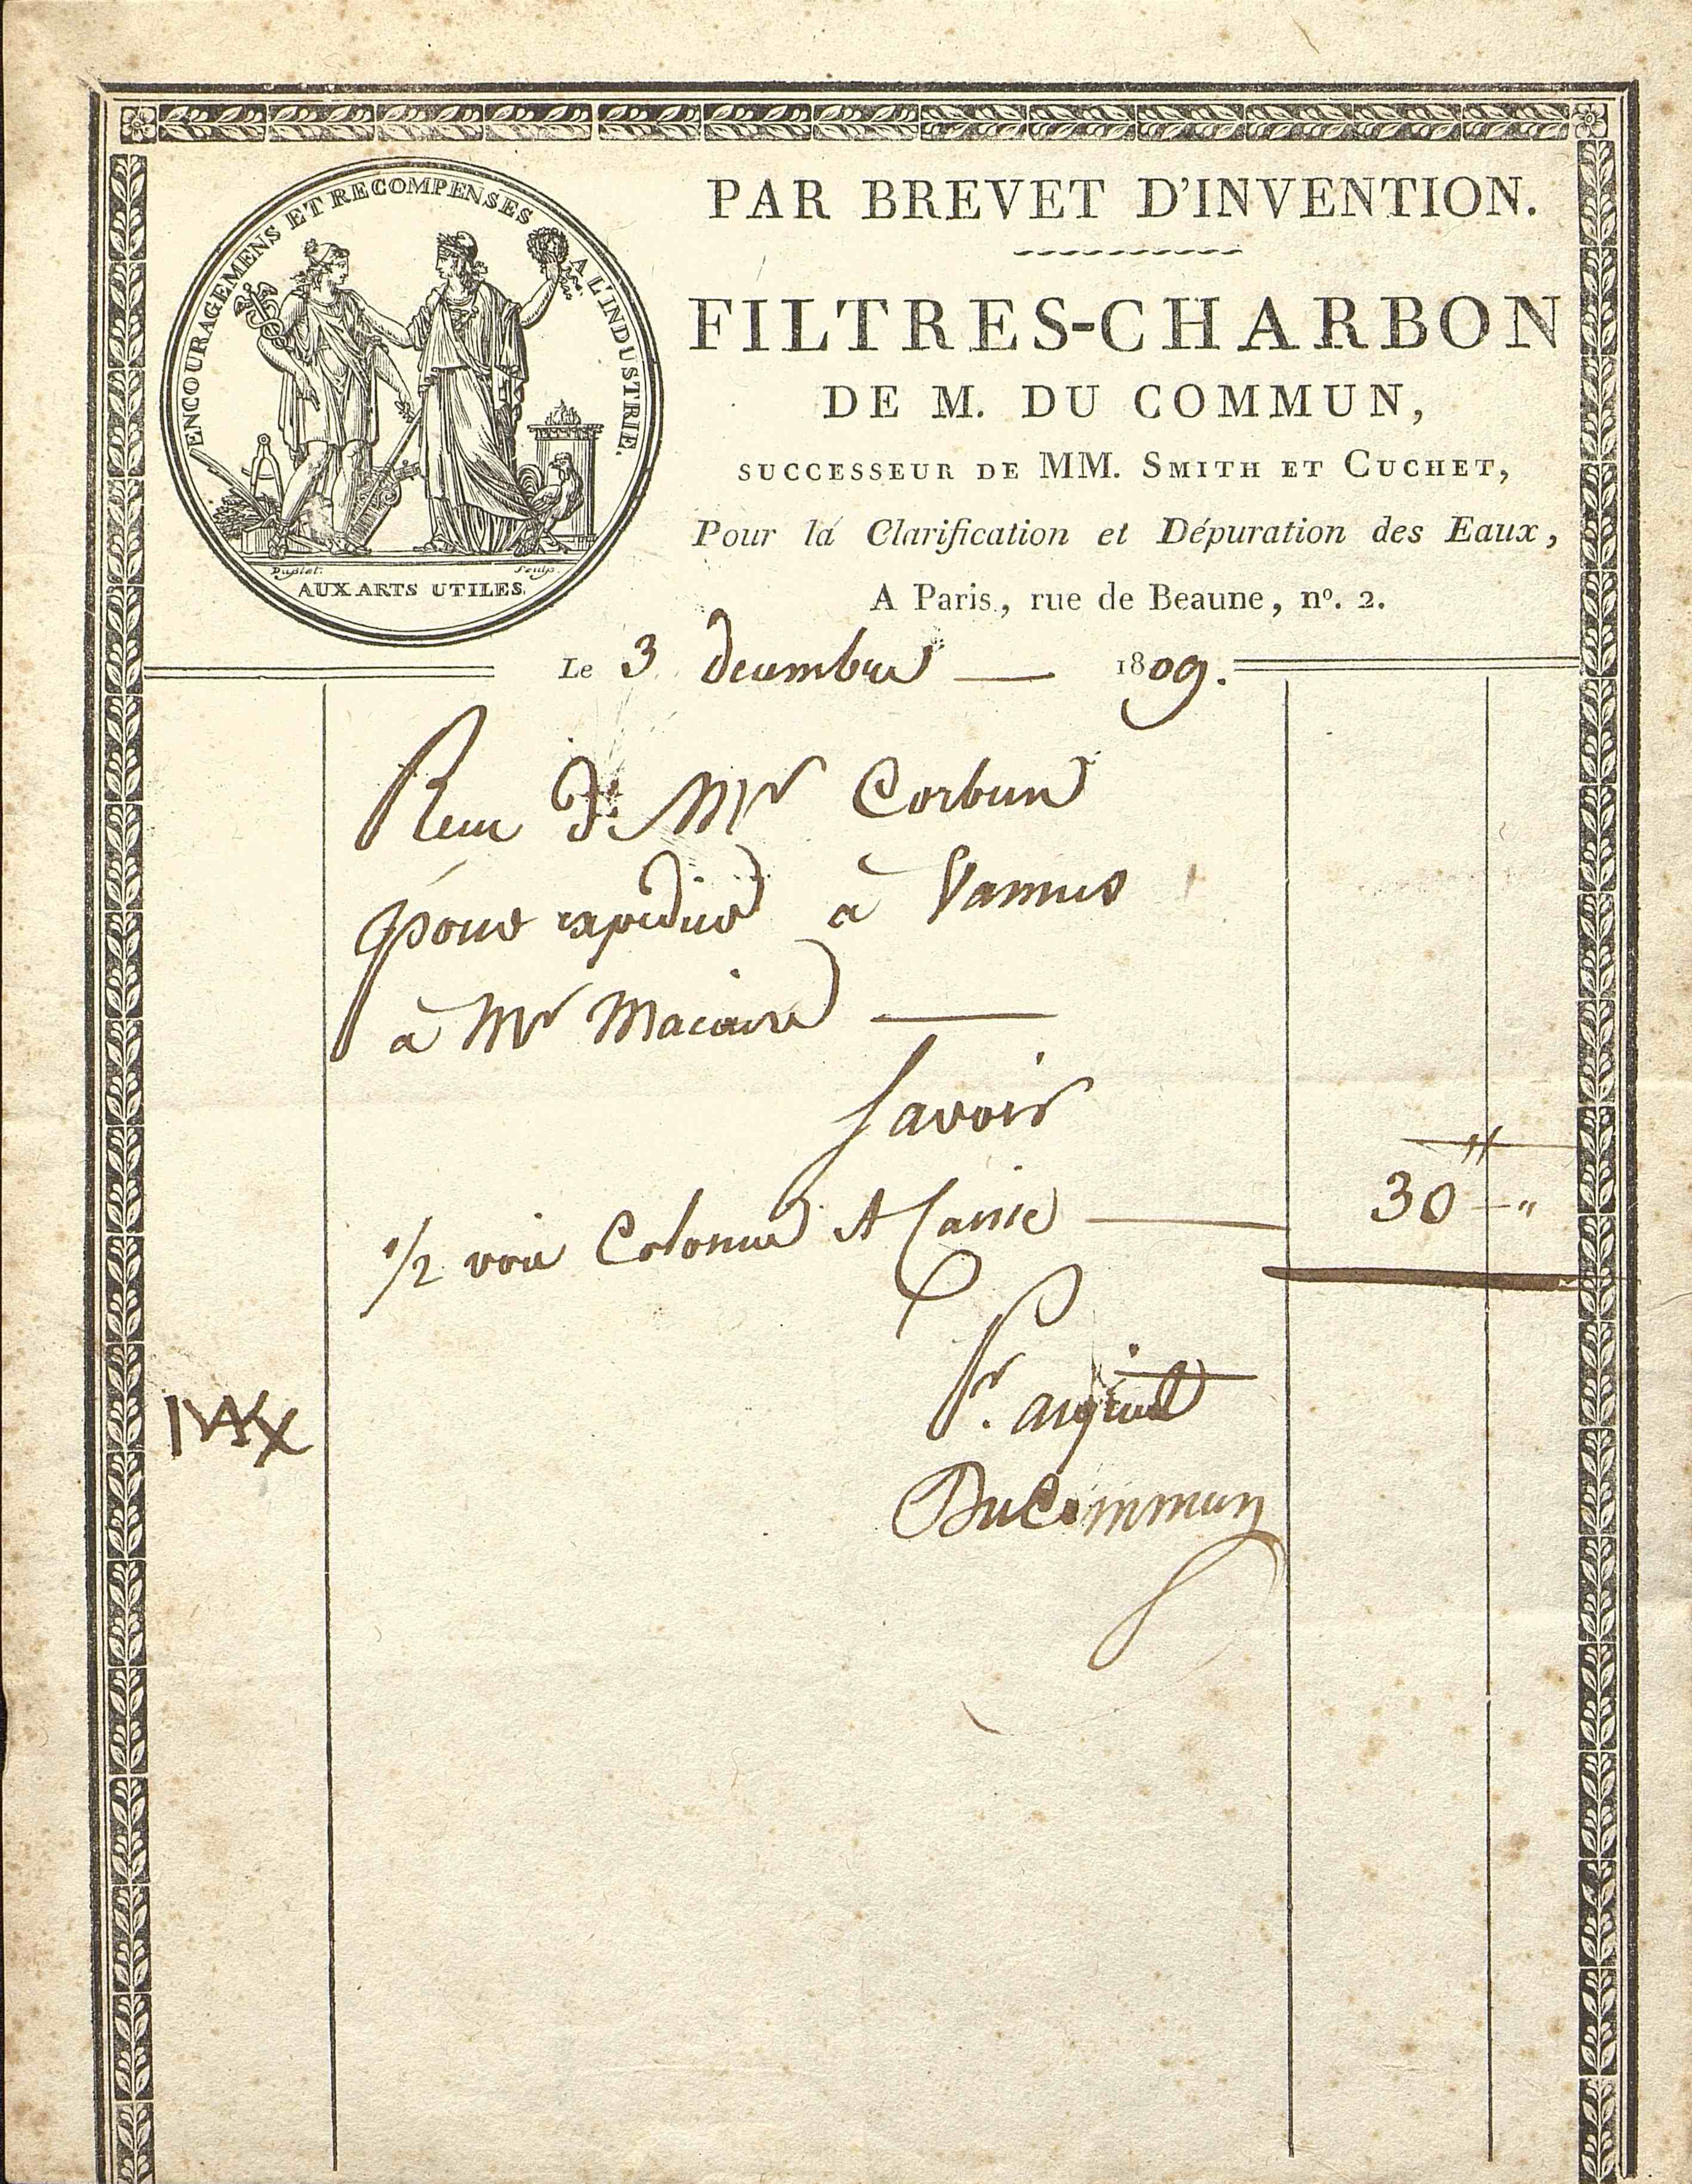 ENCOURAGEMENS ET RECOMPENSES A L'INDUSTRIE.
AUX ARTS UTILES.
PAR BREVET D'INVENTION.
FILTRES-CHARBON
DE M. DU COMMUN,
SUCCESSEUR DE MM. SMITH ET CUCHET,
Pour la Clarification et Dépuration des Eaux,
A Paris, rue de Beaune, n°. 2.
Le 3 decembre — 1809.
Recu de Mr Corbun
pour expedier à Vannes
à Mr Macaire —
Savoir
1/2 voie Colonne et Caisse — 30 — "
Pr. acquit
DuCommun